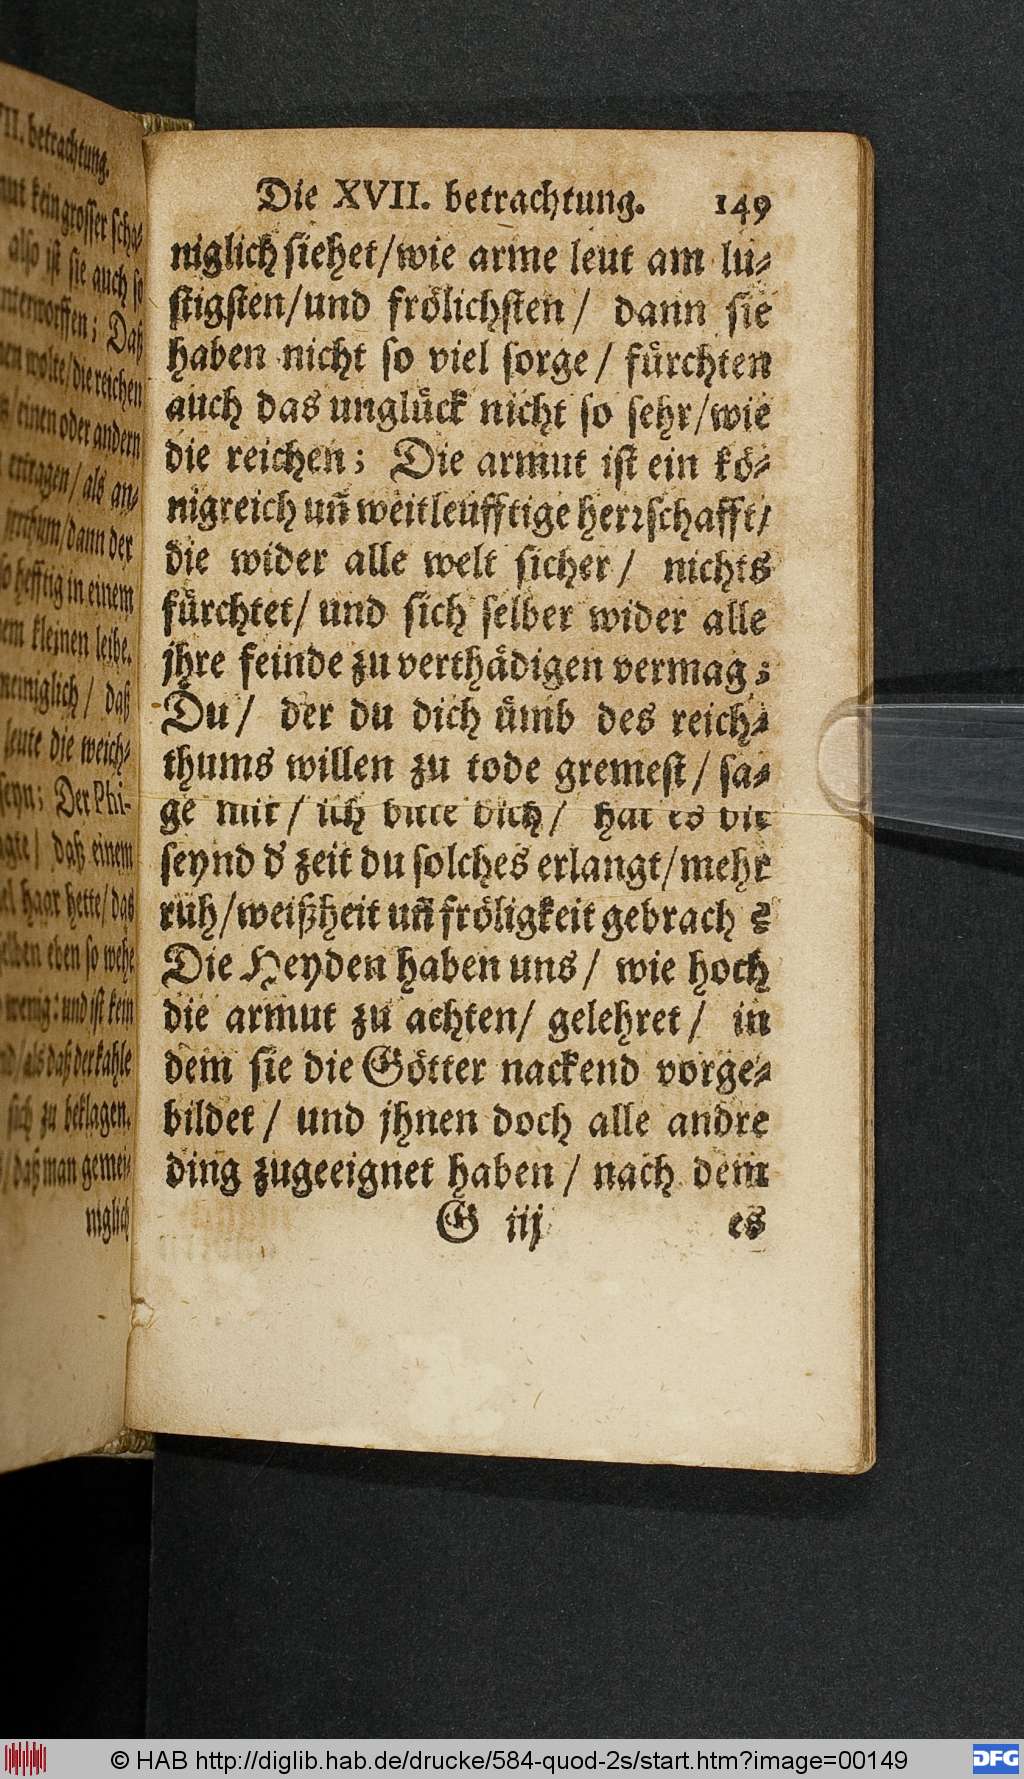 VII. betrachtung.
mut kein grosser scha-
also ist sie auch so
nterworffen; Daß
nen wolte/die reichen
einen oder andern
ertragen/als an-
dann der
so hefftig in einem
nem kleinen leibe.
meiniglich/ daß
leute die weich-
seyn; Der Phi-
daß einem
haar hette/das
eben so wehe
wenig: und ist kein
daß der kahle
sich zu beklagen.
daß man gemei-
niglich
Die XVII. betrachtung. 149
niglich siehet/wie arme leut am lu-
stigsten/und frölichsten/ dann sie
haben nicht so viel sorge/ fürchten
auch das unglück nicht so sehr/wie
die reichen; Die armut ist ein kö-
nigreich uñ weitleufftige herrschafft/
die wider alle welt sicher/ nichts
fürchtet/ und sich selber wider alle
jhre feinde zu verthädigen vermag;
Du/ der du dich ümb des reich-
thums willen zu tode gremest/ sa-
ge mir/ ich bitte dich/ hat es dir
seynd d' zeit du solches erlangt/mehr
ruh/weißheit uñ fröligkeit gebrach?
Die Heyden haben uns/ wie hoch
die armut zu achten/ gelehret/ in
dem sie die Götter nackend vorge-
bildet/ und jhnen doch alle andre
ding zugeeignet haben/ nach dem
G iij es
© HAB http://diglib.hab.de/drucke/584-quod-2s/start.htm?image=00149
DFG